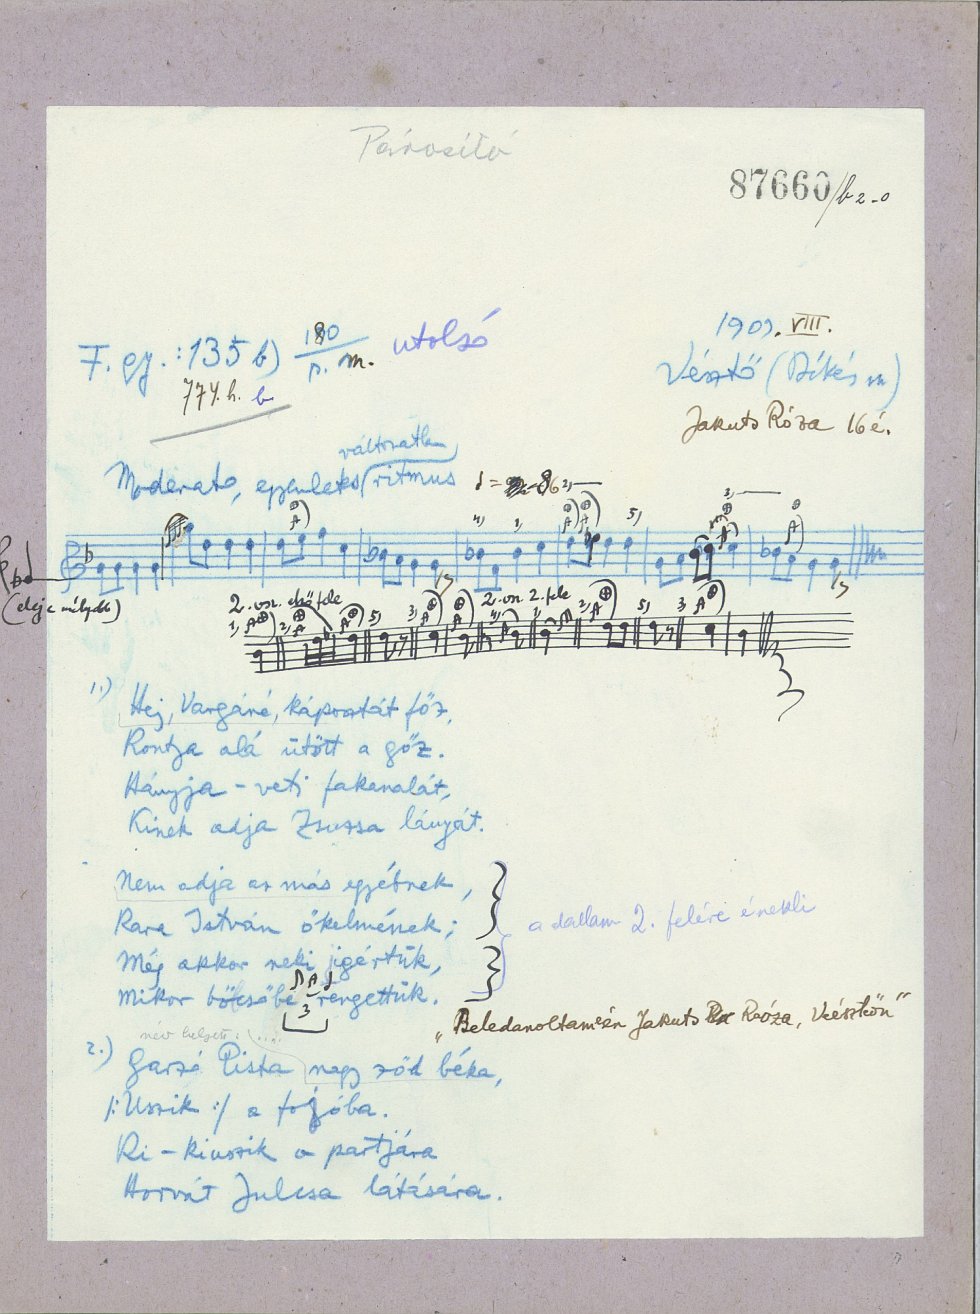 Párosító
87660/b 2-0
F. gy.: 135 b) 180/p. m. utolsó
774. h. b
190 . VIII.
Vésztő (Békés m)
Jakuts Róza 16 é.
változatlan
Moderato, egyenletes ritmus = 86
(eleje mélyebb)
2. vsz. első fele 2. vsz. 2. fele
1.) Hej, Vargáné, káposztát főz,
Kontya alá ütött a gőz.
Hányja - veti fakanalát,
Kinek adja Zsuzsa lányát.
Nem adja az más egyébnek,
Kara István őkelmének;
a dallam 2. felére énekli
Még akkor neki jigértük,
Mikor bőcsőbe rengettük.
3
„Beledanoltam én Jakuts Róza, Vésztőn"
név helyett: ....
2.) Garzó Pista nagy zöd béka,
/: Uszik :/ a fojóba.
Ki - kiuszik a partjára
Horvát Julcsa látására.